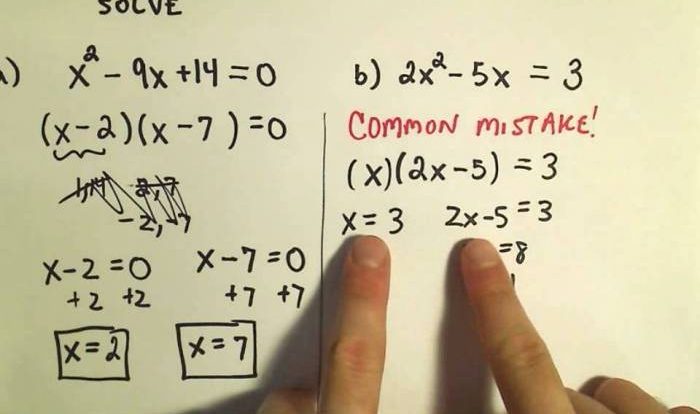 SOLVE
a) x² - 9x + 14 = 0
(x-2)(x-7) = 0
-2, -7
x-2=0 x-7=0
+2 +2 +7 +7
x=2 x=7
b) 2x² - 5x = 3
COMMON MISTAKE!
(x)(2x-5) = 3
x=3 2x-5=3
=8